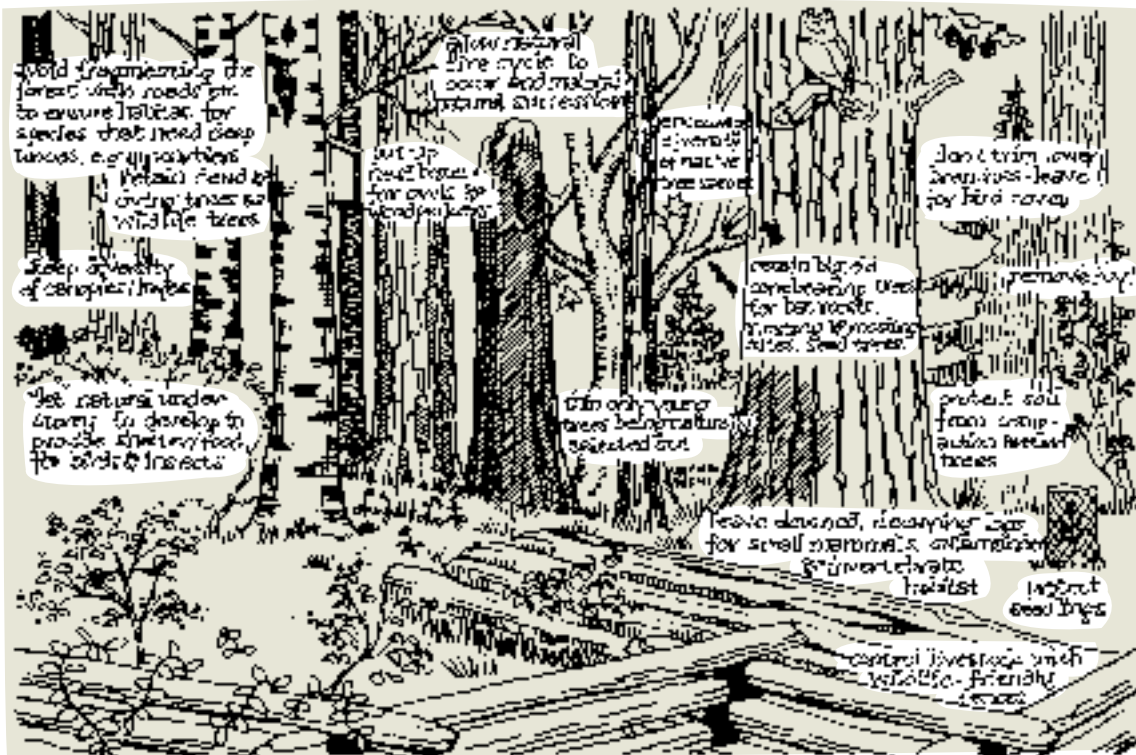 avoid fragmenting the
forest with roads etc
to ensure habitat for
species that need deep
woods, e.g.
retain dead &
dying trees as
wildlife trees
keep diversity
of canopies/
let natural under-
story to develop to
provide shelter/food
for birds & insects
allow natural
live cycle to
occur and
natural succession
put up
nest boxes
for owls &
woodpeckers
encourage
diversity
of native
tree species
thin only young
trees being naturally
selected out
retain big old
conebearing trees
for
roosting
sites. Seed trees.
don't trim lower
branches - leave
for bird cover
remove ivy!
protect soil
from comp-
action around
trees
leave downed, decaying logs
for small mammals, amphibian
& invertebrate
habitat
protect
seedlings
control livestock with
wildlife-friendly
fences